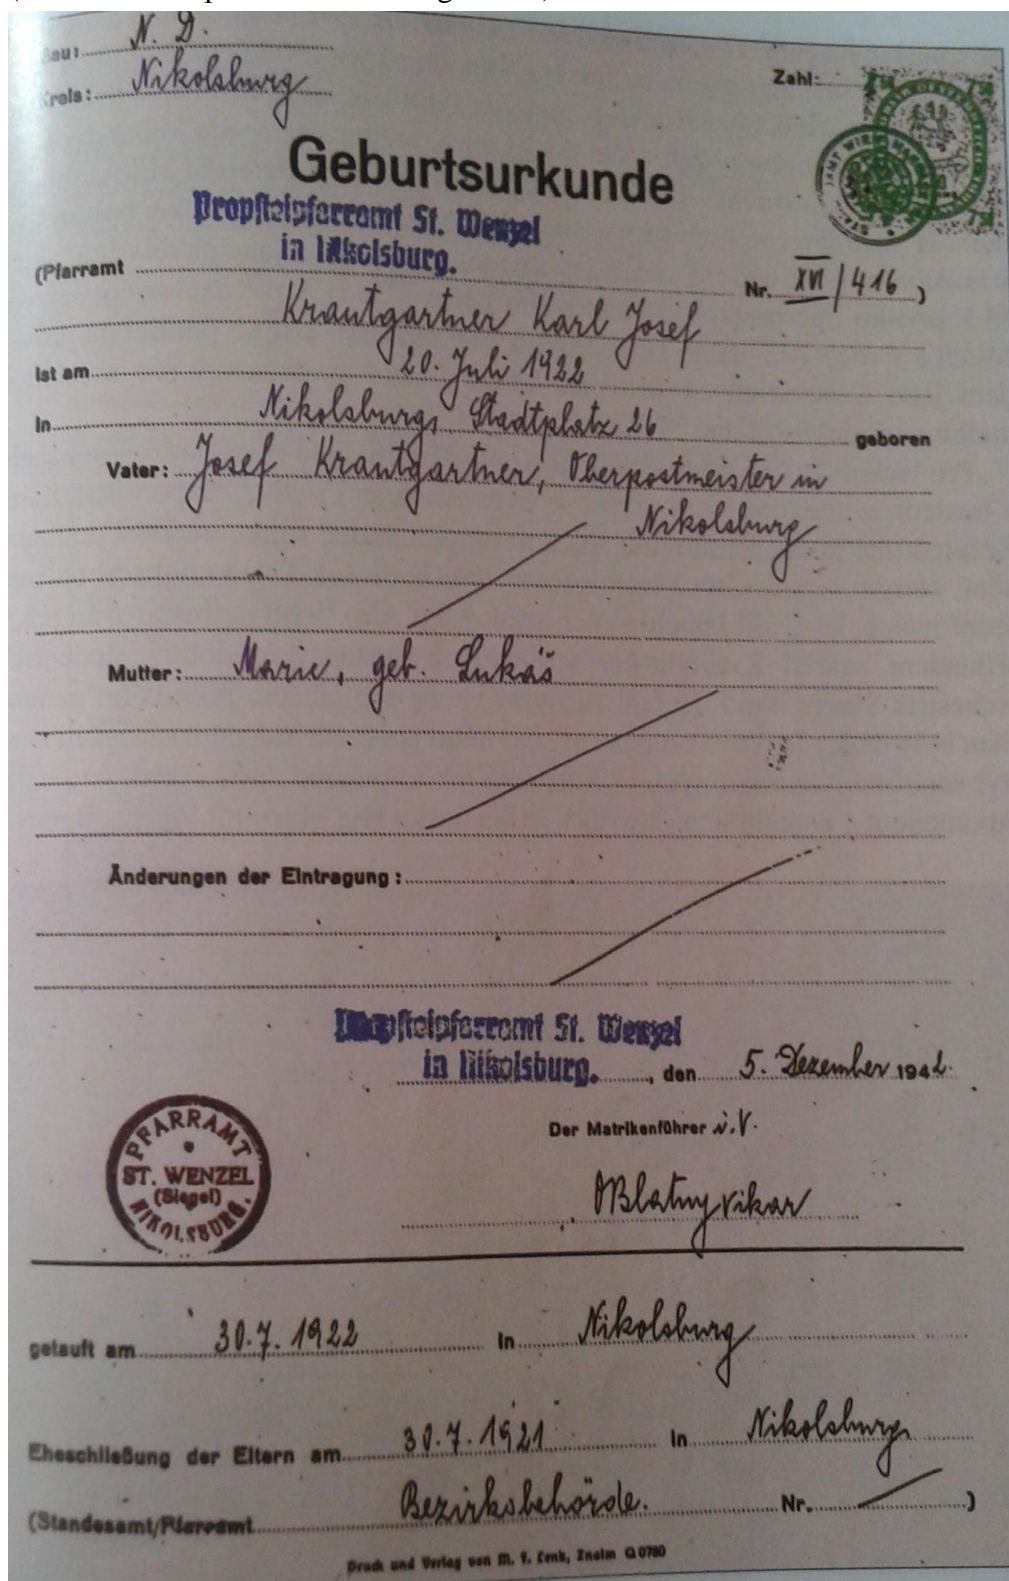 Gau: N. D.
Kreis: Nikolsburg
Zahl:
Geburtsurkunde
Propsteipfarramt St. Wenzel
in Nikolsburg.
(Pfarramt Nr. XVI/416)
Krautgartner Karl Josef
ist am 20. Juli 1922
in Nikolsburg, Stadtplatz 26 geboren
Vater: Josef Krautgartner, Oberpostmeister in
Nikolsburg
Mutter: Marie, geb. Lukáš
Änderungen der Eintragung:
Propsteipfarramt St. Wenzel
in Nikolsburg., den 5. Dezember 1942.
Der Matrikenführer i.V.
PFARRAMT
ST. WENZEL
(Siegel)
NIKOLSBURG.
Blatny Vikar
getauft am 30.7.1922 in Nikolsburg
Eheschließung der Eltern am 30.7.1921 in Nikolsburg
(Standesamt/Pfarramt Bezirksbehörde. Nr. )
Druck und Verlag von M. F. Lenk, Znaim Q 0780